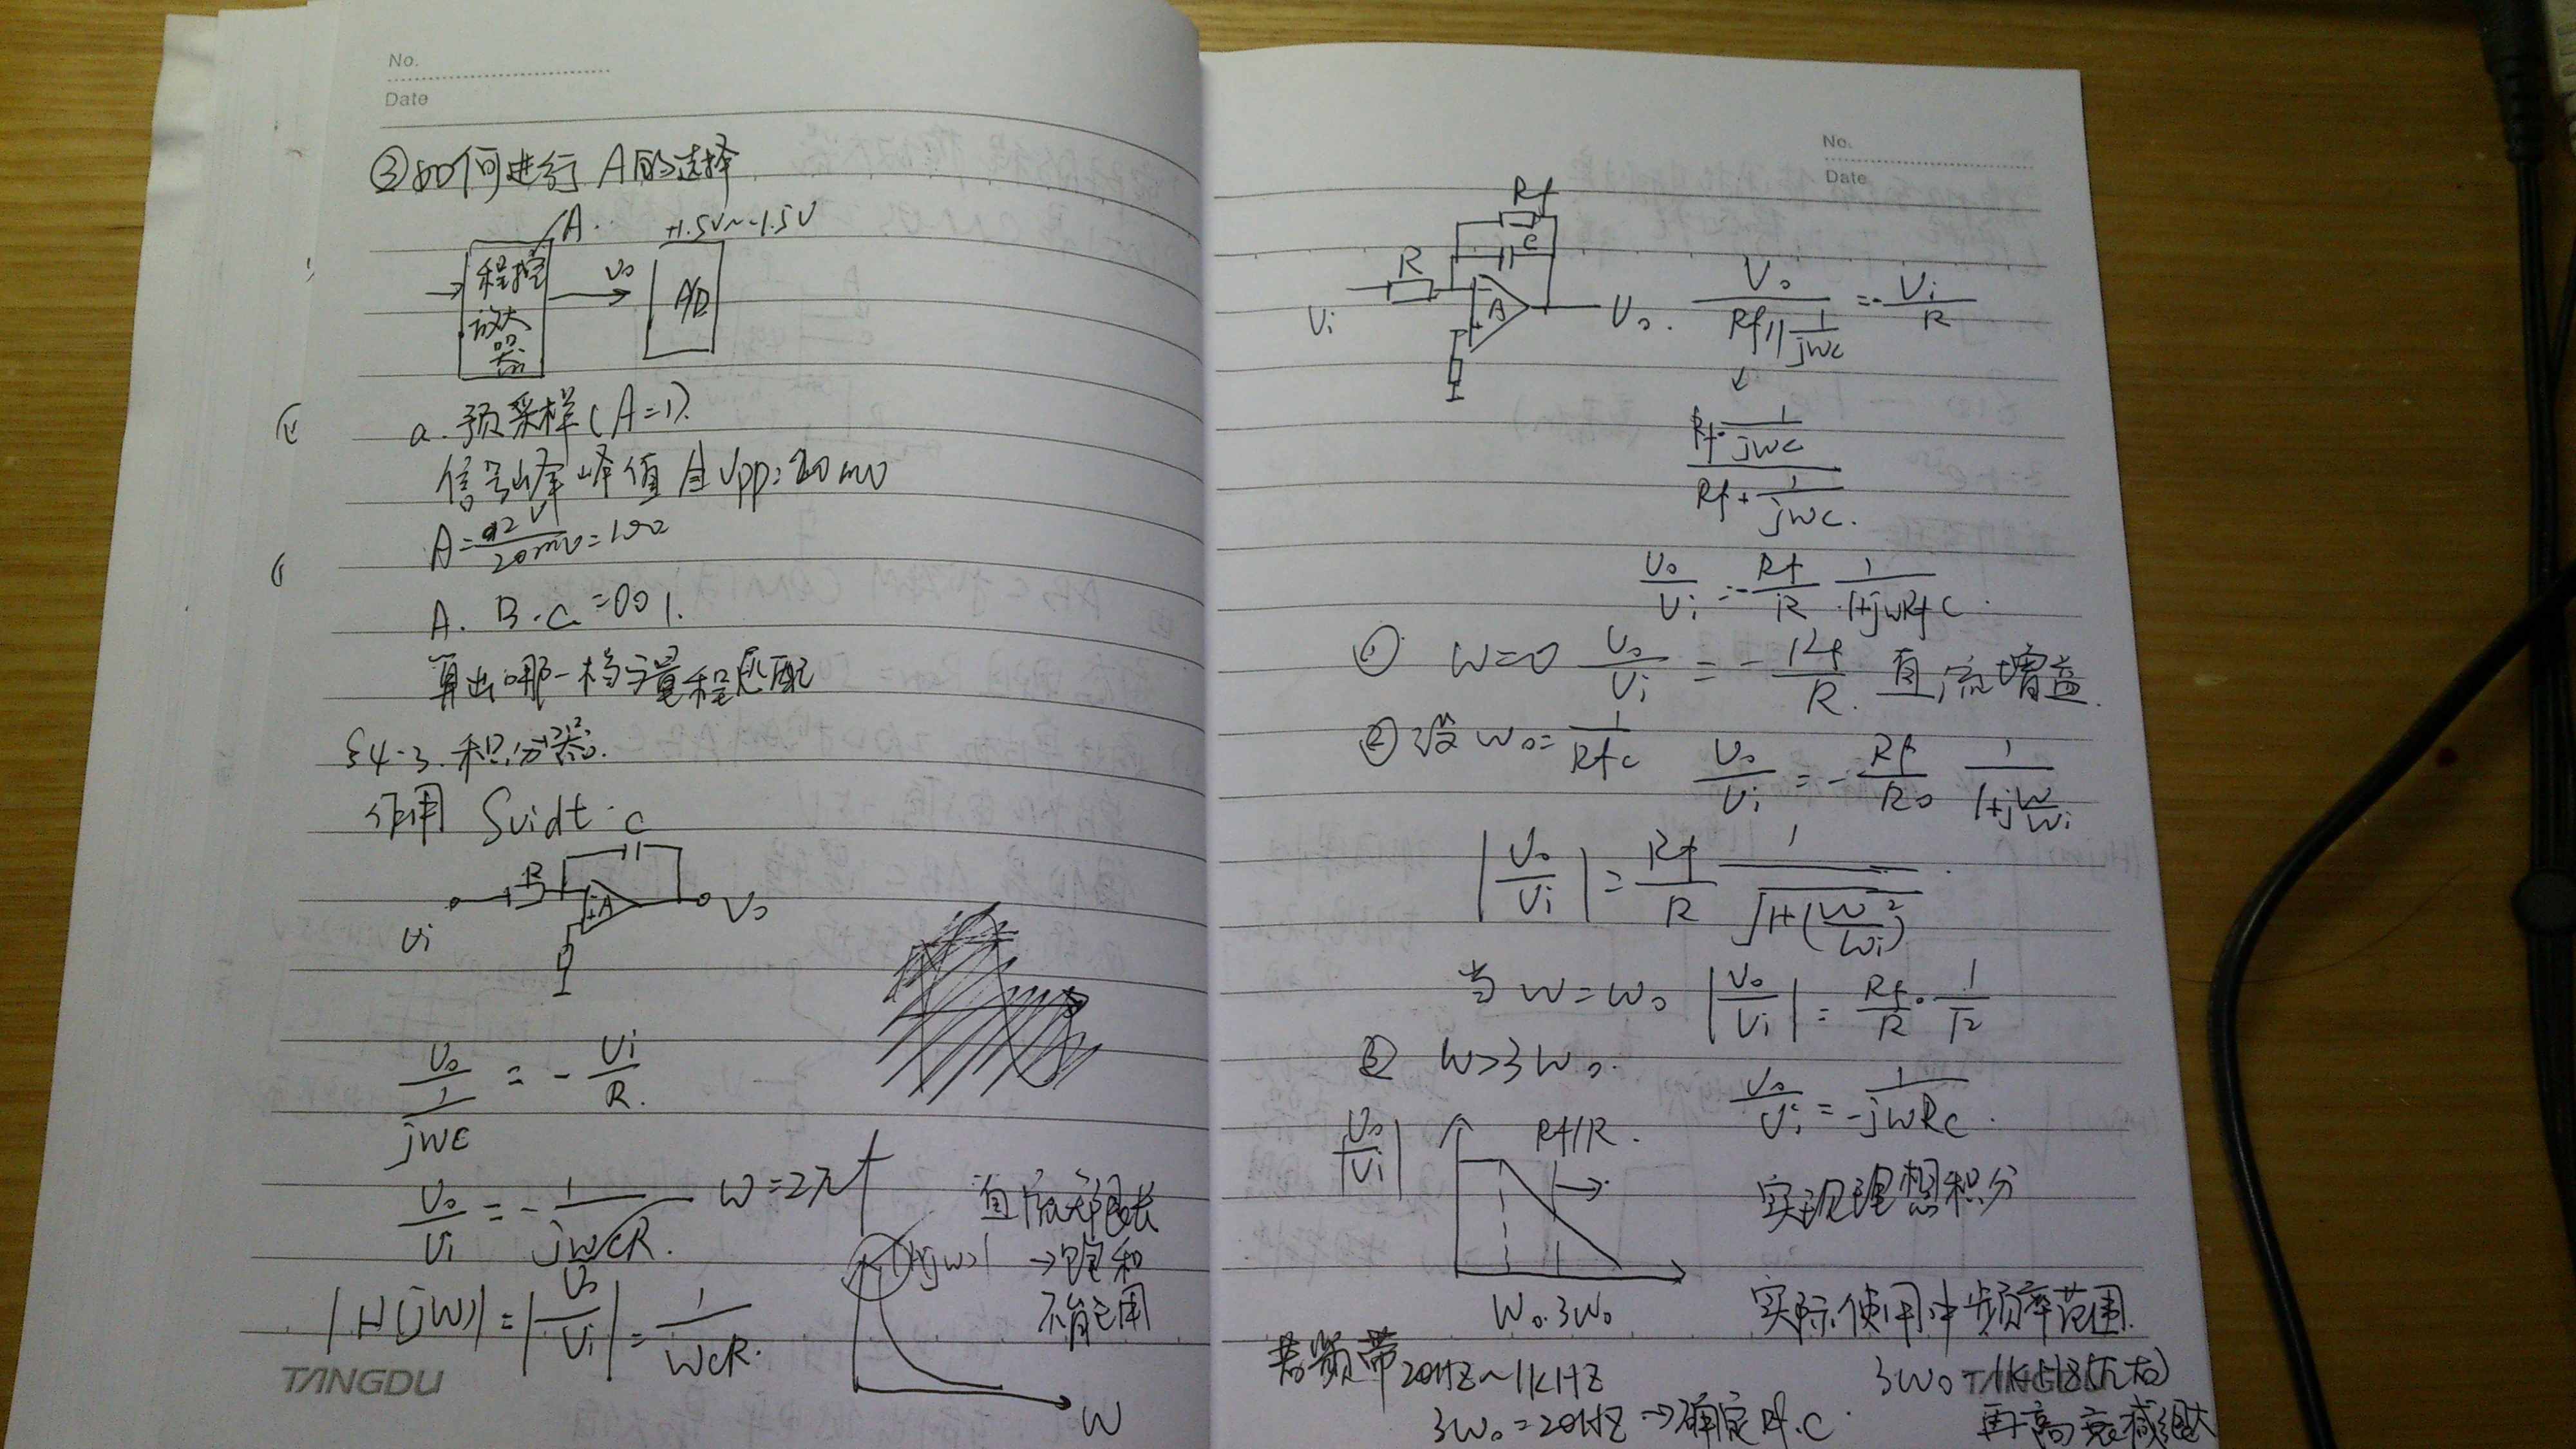 No.
Date
③如何进行 A的选择
A.
+1.5V~-1.5V
程控
放大
器
V₀
A/D
a.预采样(A=1).
信号峰峰值 Vpp=20mV
A=2V/20mV=100
A. B. C =001.
算出哪一档与量程匹配
§4-3.积分器.
作用 ∫vidt
C
R
A
Vi
V₀
V₀/(1/jwc) = - Vi/R.
V₀/Vi = - 1/jwCR. w=2πf
直流无限大
→饱和
不能用
|H(jw)|
|H(jw)| = |V₀/Vi| = 1/wCR.
W
TANGDU
No.
Date
Rf
C
R
A
Vi
V₀.
V₀/(Rf∥1/jwc) = - Vi/R
↙
(Rf·1/jwc)/(Rf+1/jwc.)
V₀/Vi = - Rf/R 1/(1+jwRfC).
① w=0 V₀/Vi = - Rf/R. 直流增益.
② 设 w₀= 1/RfC V₀/Vi = - Rf/R₀ 1/(1+j w/wi)
|V₀/Vi| = Rf/R 1/√(1+(w/wi)²).
当 w=w₀ |V₀/Vi| = Rf/R · 1/√2
③ w>3w₀.
V₀/Vi = 1/-jwRC.
|V₀/Vi|
Rf/R.
实现理想积分
W₀.3W₀
实际使用中频率范围.
若频带20HZ~1KHZ
3W₀=20HZ→确定Rf.C.
再高衰减太
TANGDU